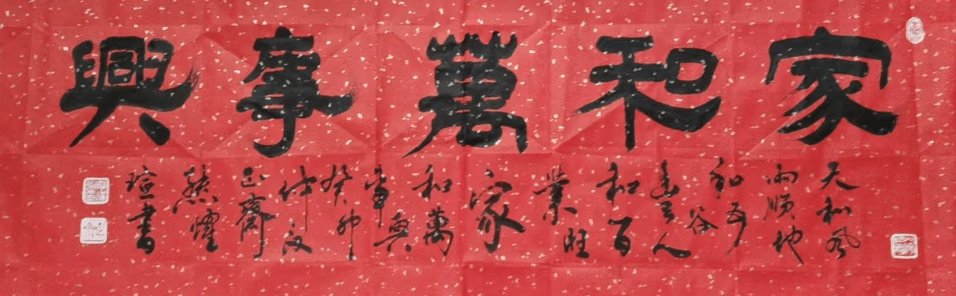 家和萬事興
天和風
雨順地
和五谷
豐人
和百
業旺
家
和萬
事興
癸卯
仲夏
瑄書